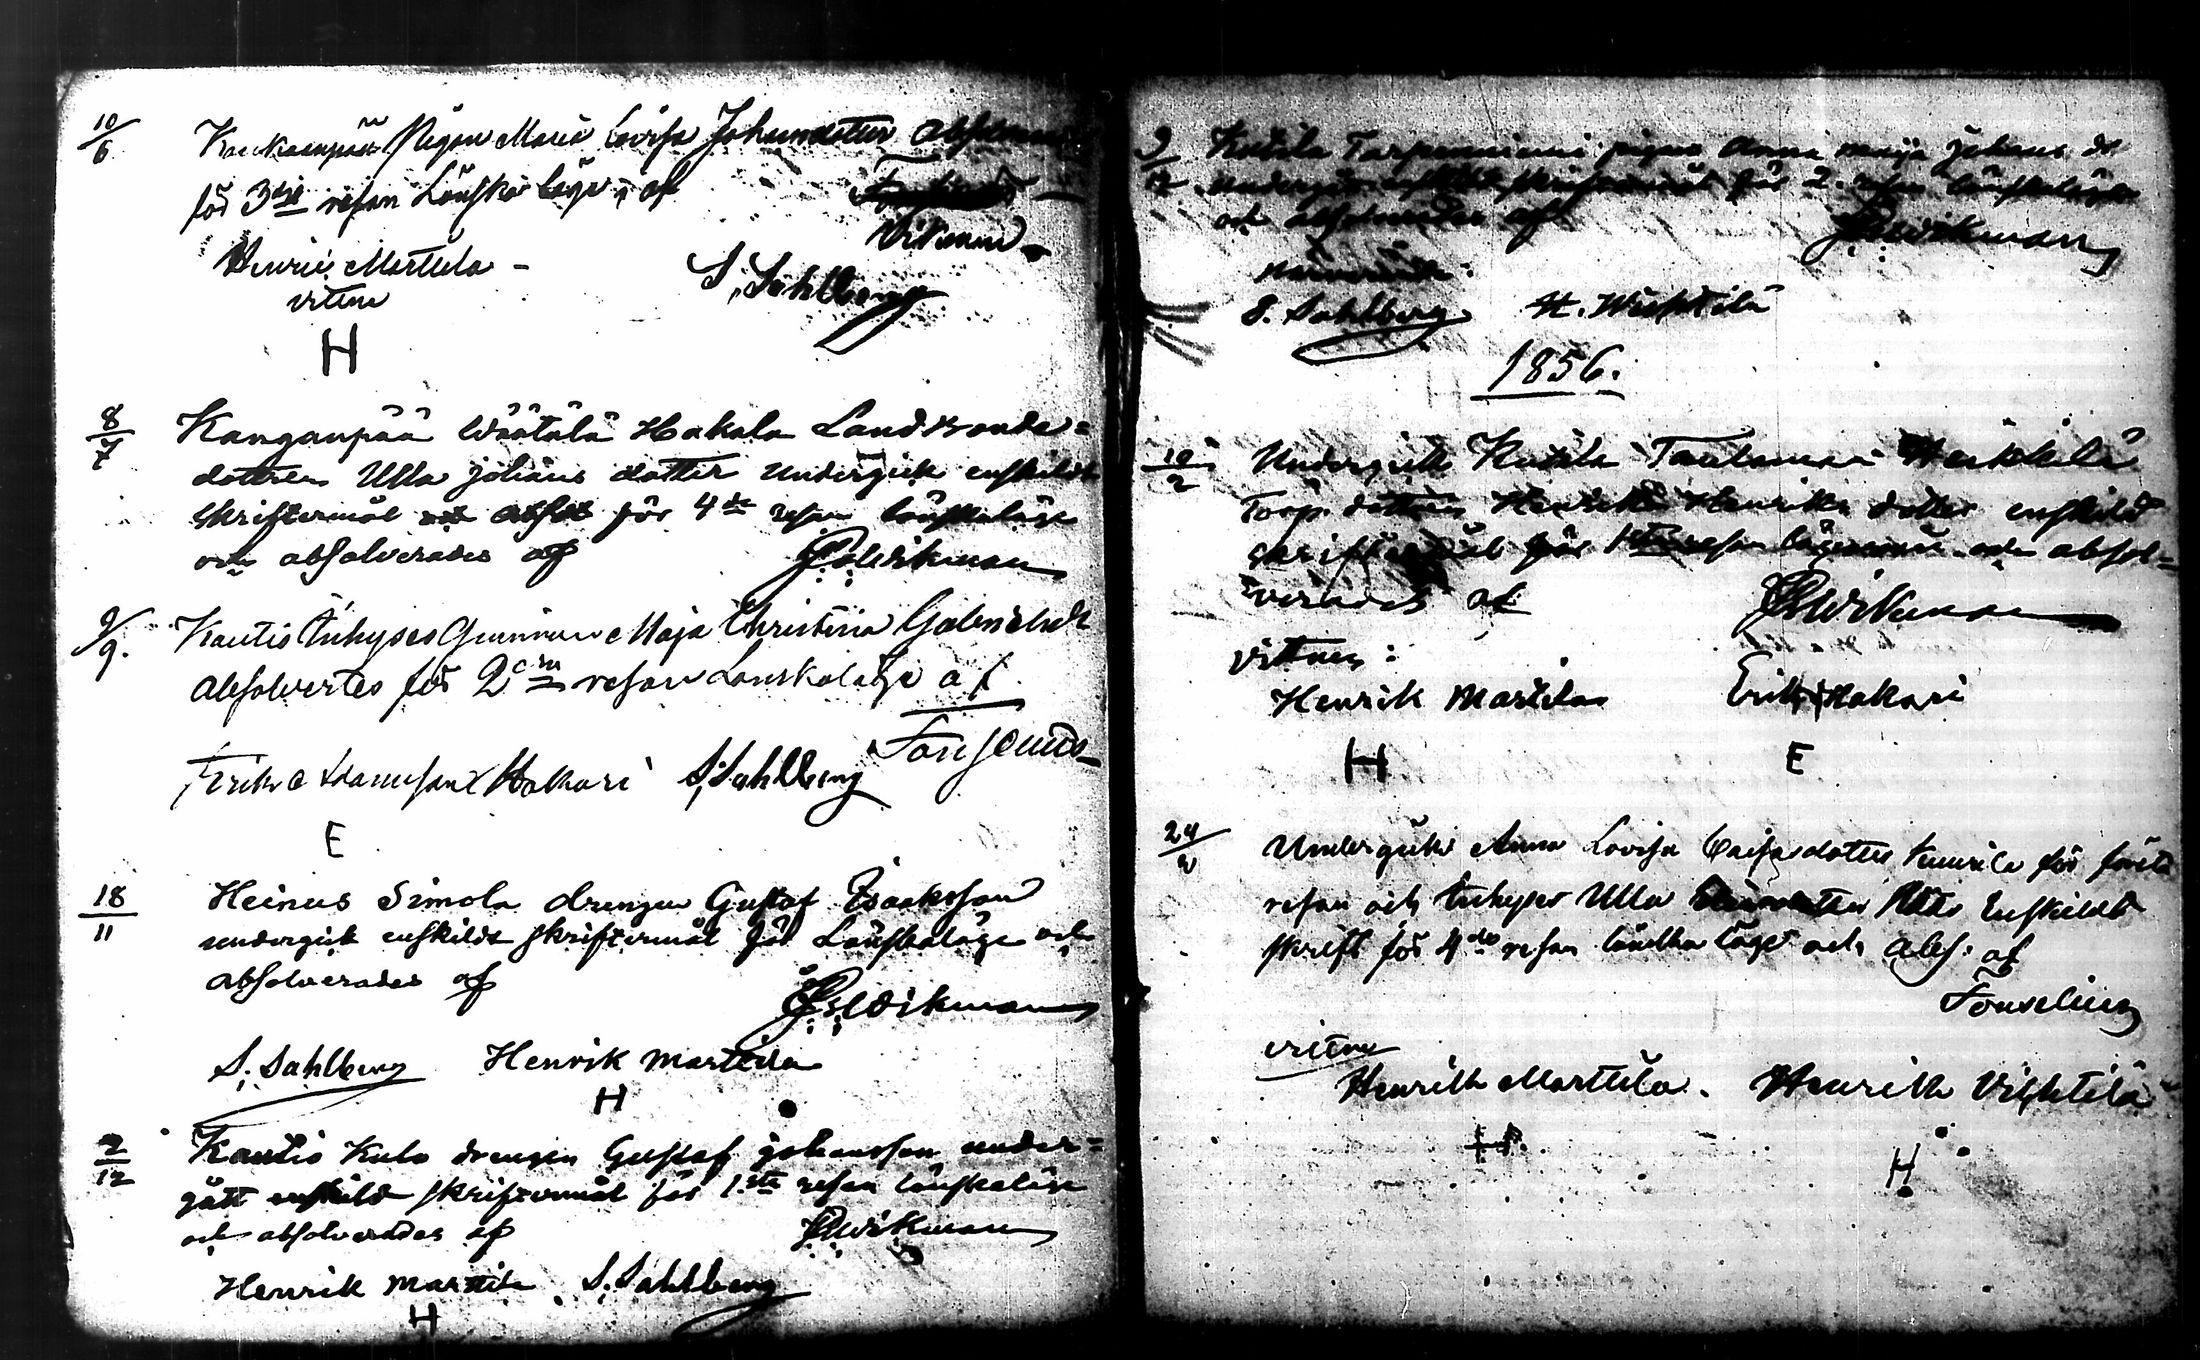 10/6 Kankaanpää Pigan Maria Lovisa Johansdotter
för 3dje resan Lönska läge, af
Wikman
Henric Marttila
vittne
S. Sahlberg
H
8/7 Kanganpää Wäätälä Hakala Landbonde-
dottren Ulla Johans dotter undergick enskildt
skriftermål för 4de resan lönskaläge
och absolverades af
Wikman
9/9. Kautio Inhyses Maja Christina Gabrielsdr
absolvertes för 2dra resan Lönskaläge af
Fonselius
Erik Hakari S. Sahlberg
E
18/11 Heinus Simola drengen Gustaf Isaaksson
undergick enskildt skriftermål för Lönskaläge och
absolverades af
Wikman
S. Sahlberg Henrik Marttila
H
2/12 Kautio Kulo drengen Gustaf Johansson under-
gått enskild skriftermål för 1sta resan lönskaläge
och absolverades af Wikman
Henrik Marttila S. Sahlberg
H
9/12 pigan Anna Maija Johans dr
enskildt skriftermål för 2. resan lönskaläge
och absolverades af
Wikman
S. Sahlberg H. Wichtilä
1856.
10/2 Undergick Heikkilä
Torp. dottren Henrika Henriks dotter enskild
skriftermål för 1sta resan och absol-
verades af
Wikman
vittnen:
Henrik Marttila Erik Hakari
H E
24/2 Undergick Anna Lovisa Caisadotter för första
resan och Inhyses Ulla Enskildt
skrift för 4de resan lönska läge och abs. af
Fonselius
vittna
Henrik Marttila. Henrik Vichtilä
H
H